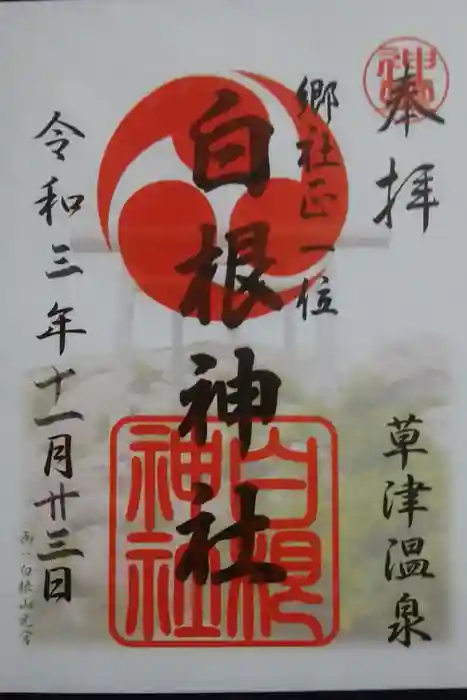 奉拝
草津温泉
郷社正一位
白根神社
白根神社
令和三年十一月廿三日